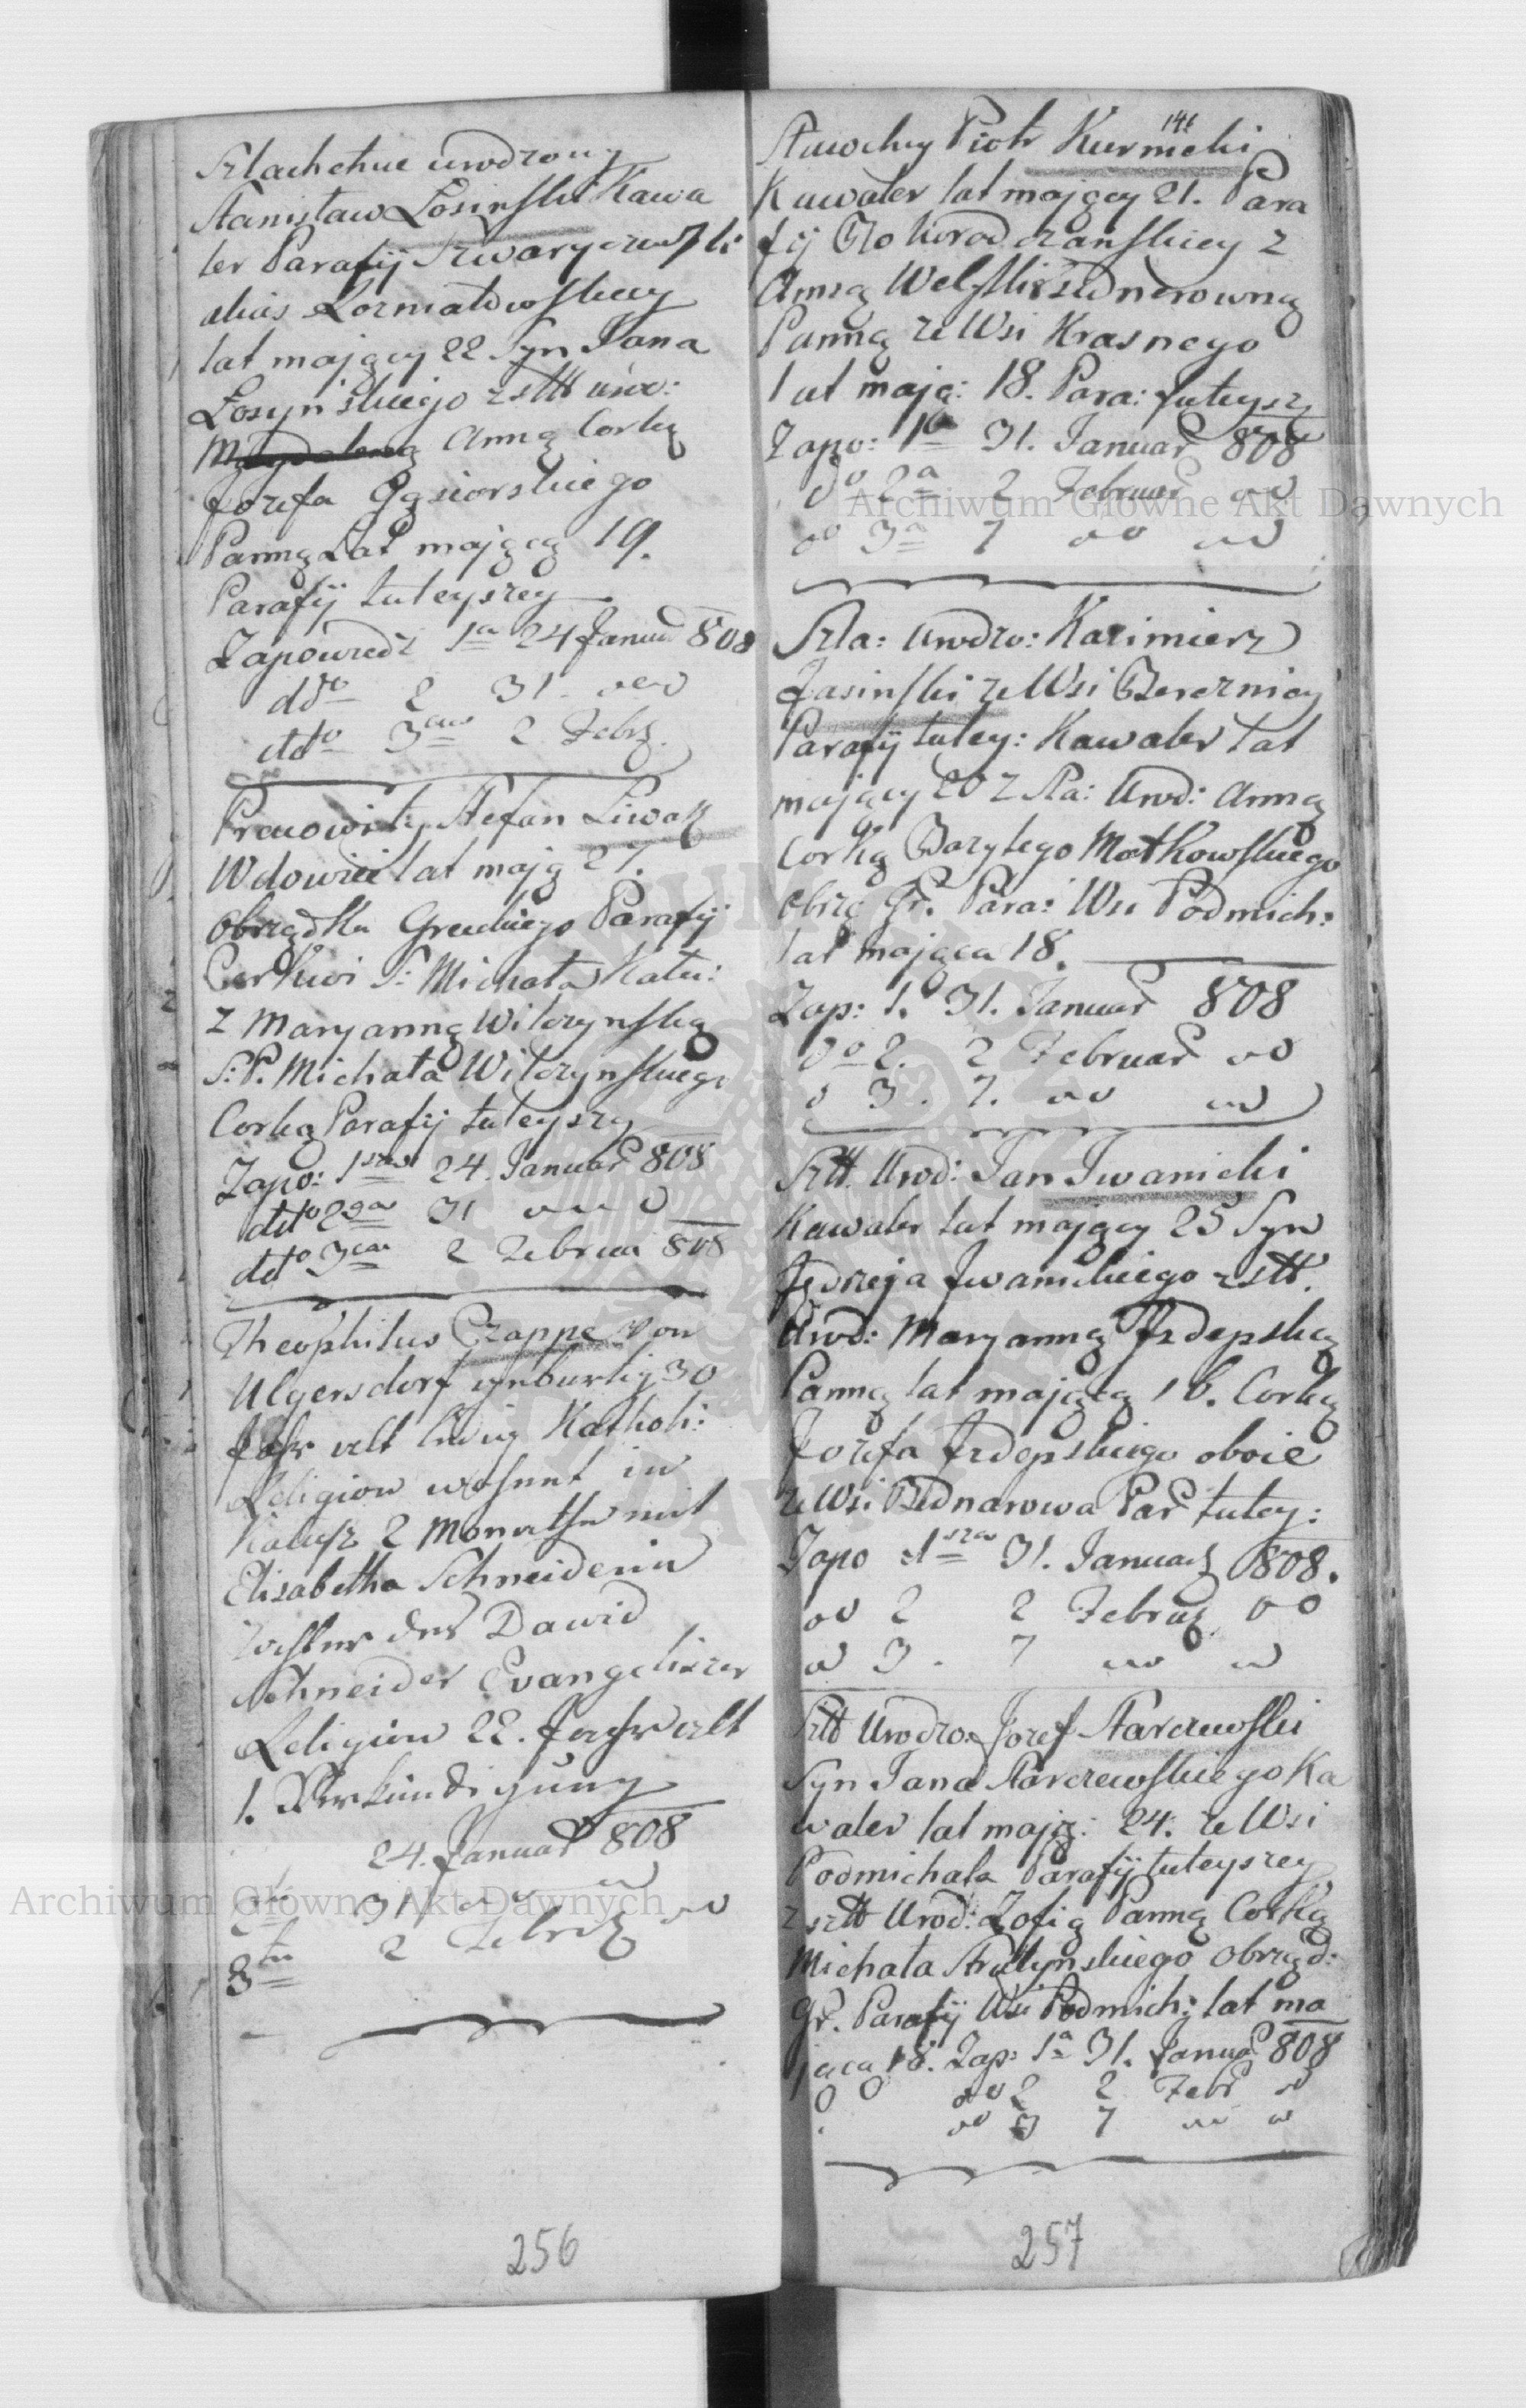 Szlachetnie urodzony
Stanisław Łosinski Kawa
ler Parafij
alias
lat mający 22 Syn Jana
Łosynskiego z stt uro:
Magdaleną Anną Corką
Jozefa Gąsiorskiego
Panną Lat mającą 19.
Parafij tuteyszey
Zapowiedz 1a 24 Januar 808
ddo 2 31
ddto 3cia 2 Febr.
Pracowity Stefan Liwak
Wdowiec lat mają 27.
obrządku Greckiego Parafij
Cerkwi S: Michała Kału:
z Maryanną Wilczynską
S:P. Michała Wilczynskiego
Corką Parafij tuteyszey
Zapo: 1sza 24. Januar 808
detto 2ga 31
detto 3cia 2 Februa 808
Theophilus Czappe von
Ulgersdorf gebürtig 30
Jahr alt ledig Katholi:
Religion wohnt in
Kalusz 2 Monathe mit
Elisabetha Schneiderin
Tochter des Dawid
Schneider Evangelischer
Religion 22. Jahr alt
1. Verkündigung
24. Januar 808
31
3te 2 Febr
256
141
Sławetny Piotr
Kawaler lat mający 21. Para
fij Bohorodczanskiey z
Anną
Panną ze Wsi Krasnego
lat mają: 18. Para: tuteysz
Zapo: 1a 31. Januar 808
do 2a 2 Februar do
do 3a 7 do do
Szla: Urodzo: Kazimierz
Jasinski ze Wsi Bereznicy
Parafij tutey: Kawaler lat
mający 20 z Sla: Urod: Anną
Corką Bazylego Matkowskiego
obrzą Gr. Para: Wsi Podmich:
lat mająca 18.
Zap: 1. 31. Januar 808
do 2. 2 Februar do
d 3. 7. do do
Szltt. Urod: Jan Iwanicki
Kawaler lat mający 25 Syn
Jędrzeja Iwanickiego z sltt.
Urod: Maryanną
Panną lat mającą 16. Corką
Jozefa oboie
ze Wsi Bednarowa Par tutey:
Zapo 1sza 31. Januar 808.
do 2 2 Februar do
do 3. 7 do do
Szltt Urodzo: Jozef Starczewski
Syn Jana Starczewskiego Ka
waler lat mają: 24. ze Wsi
Podmichala Parafij tuteyszey
z szltt Urod: Zofią Panną Corką
Michała Strutynskiego obrząd:
Gr. Parafij Wsi Podmich: lat ma
jąca 18. Zap: 1a 31. Januar 808
do 2 2 Febr do
do 3 7 do do
257
Archiwum Główne Akt Dawnych
Archiwum Główne Akt Dawnych